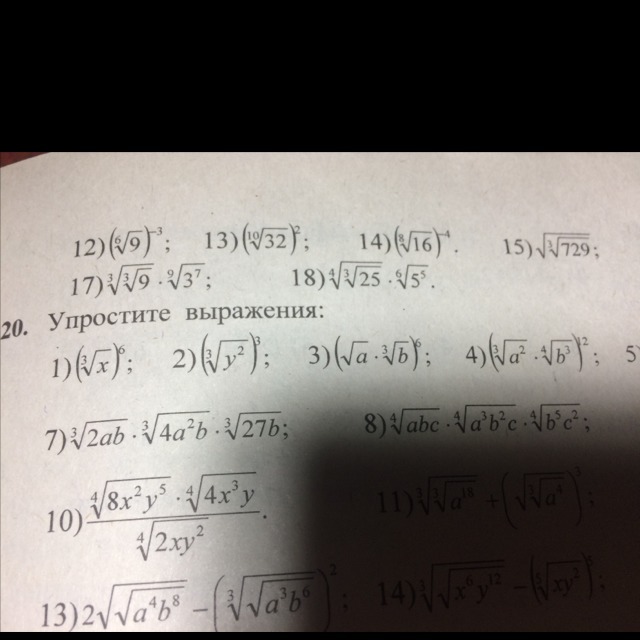 12) (⁶√9)⁻³; 13) (¹⁰√32)²; 14) (⁸√16)⁻⁴. 15) √(³√729);
17) ³√(³√9) · ⁹√(3⁷); 18) ⁴√(³√25) · ⁶√(5⁵).
20. Упростите выражения:
1) (³√x)⁶; 2) (³√(y²))³; 3) (√a · ³√b)⁶; 4) (³√(a²) · ⁴√(b³))¹²; 5)
7) ³√(2ab) · ³√(4a²b) · ³√(27b); 8) ⁴√(abc) · ⁴√(a³b²c) · ⁴√(b⁵c²);
10) (⁴√(8x²y⁵) · ⁴√(4x³y)) / ⁴√(2xy²). 11) ³√(³√(a¹⁸)) + (√(³√(a⁴)))³;
13) 2√(√(a⁴b⁸)) − (³√(√(a³b⁶)))²; 14) ³√(√(x⁶y¹²)) − (⁵√(xy²))⁵;